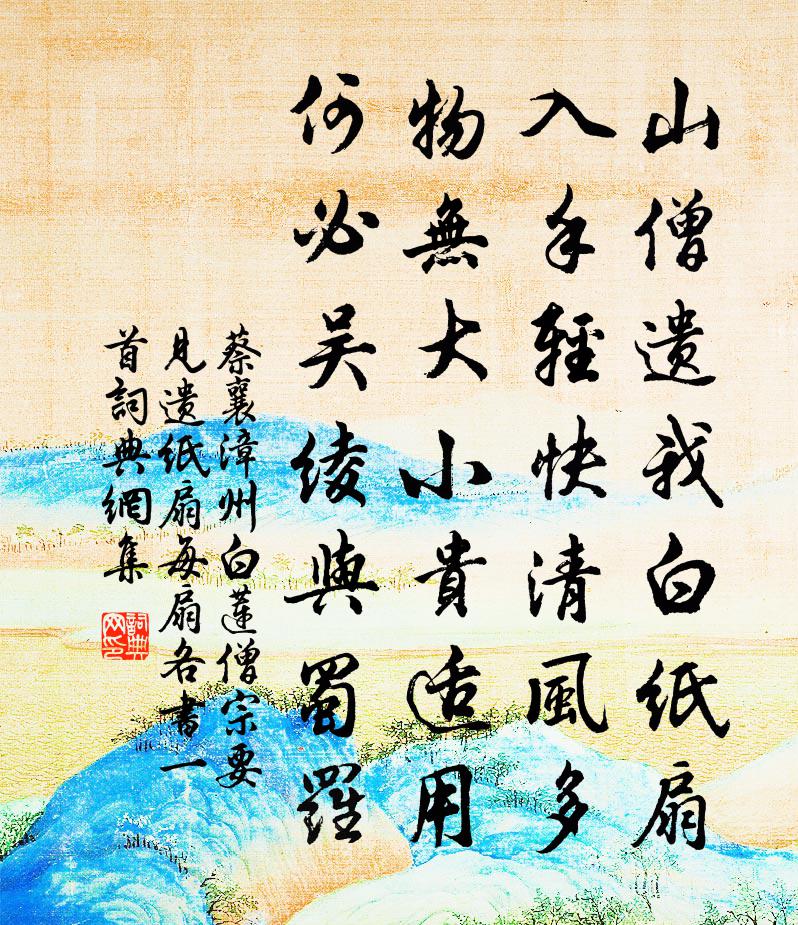 山僧遗我白纸扇
入手輕快清風多
物無大小貴适用
何必吴绫與蜀羅
蔡襄漳州白莲僧宗要
见遗纸扇每扇各書一
首詞典網集
詞典
网印